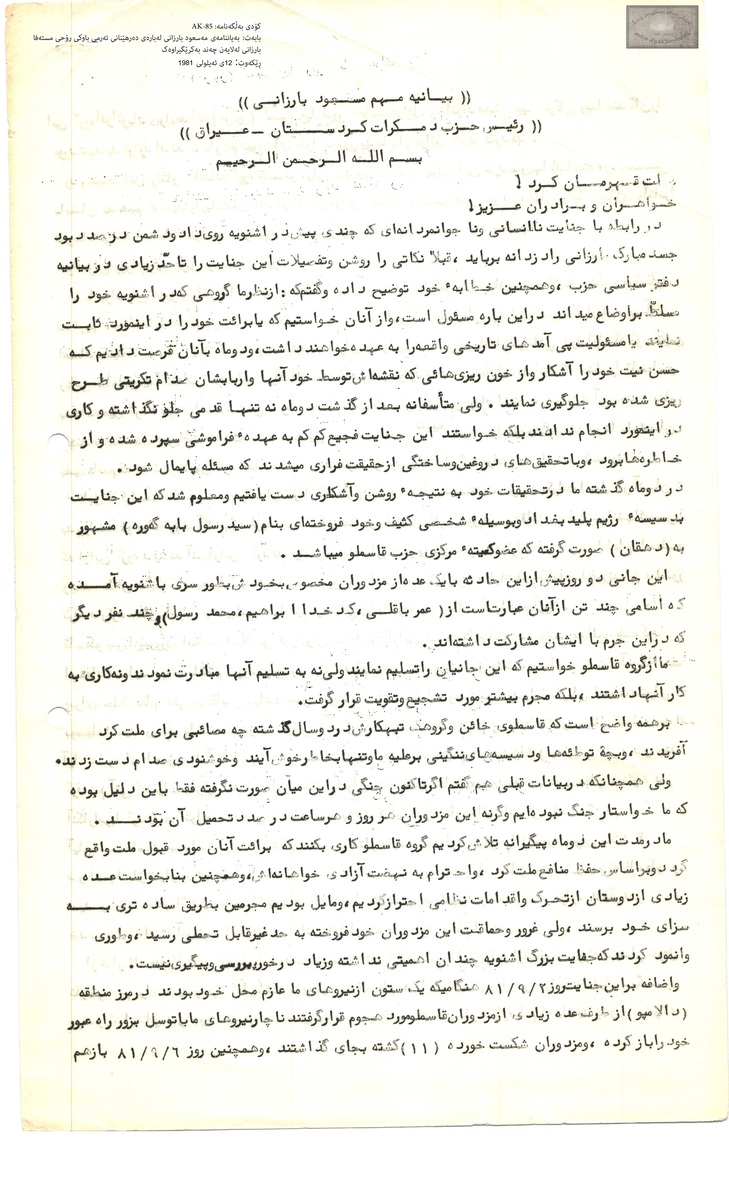 کۆدی بەڵگەنامە: AK-85
بابەت: بەیاننامەی مەسعود بارزانی لەبارەی دەرهێنانی تەرمی باوکی رۆحی مستەفا
بارزانی لەلایەن چەند بەکرێگیراوەک
ڕێکەوت: 12ی ئەیلولی 1981
(( بیـانیه مـهـم مسـعود بارزانـی ))
(( رئیس حزب دمـکرات کـردسـتان ــ عـیراق ))
بسـم اللـه الـرحـمن الـرحـیم
ملت قـهـرمـان کـرد !
خـواهـران و بـرادران عـزیز !
در رابطه با جنایت ناانسانی ونا جوانمردانه‌ای که چندی پیش در اشنویه روی داد ودشمن درصدد بود
جسد مبارک بارزانی را دزدانه برباید ، قبلا نکاتی را روشن وتفصیلات این جنایت را تاحد زیادی در بیانیه
دفتر سیاسی حزب ، وهمچنین خطابهٔ خود توضیح داده وگفتم که : ازنظرما گروهی که در اشنویه خود را
مسلط براوضاع میداند دراین باره مسئول است ، واز آنان خواستیم که یا برائت خود را در اینمورد ثابت
نمایند یا مسئولیت پی آمدهای تاریخی واقعه را به عهده خواهند داشت ، ودوماه بآنان فرصت دادیم کـه
حسن نیت خود را آشکار واز خون ریزی هائی که نقشه‌اش توسط خود آنها واربابشان صدام تکریتی طرح
ریزی شده بود جلوگیری نمایند . ولی متأسفانه بعد از گذشت دوماه نه تنها قدمی جلو نگذاشته و کاری
در اینمورد انجام ندادند بلکه خواستند این جنایت فجیع کم کم به عهدهٔ فراموشی سپرده شده و از
خاطره‌ها برود ، وباتحقیق‌های دروغین وساختگی ازحقیقت فراری میشدند که مسئله پایمال شود .
در دوماه گذشته ما درتحقیقات خود به نتیجهٔ روشن وآشکاری دست یافتیم ومعلوم شد که این جنایـت
بدسیسهٔ رژیم پلید بغداد وبوسیلهٔ شخصی کثیف وخود فروخته‌ای بنام ( سید رسول بابه گه‌وره ) مشهور
به ( دهقان ) صورت گرفته که عضو کمیتهٔ مرکزی حزب قاسملو میباشـد .
این جانی دو روز پیش ازاین حادثه بایک عده از مزدوران مخصوص بخودش بطور سری باشنویه آمـده
که اسامی چند تن ازآنان عبارتست از ( عمر باقلـی ، کدخدا ابراهیم ، محمد رسول ) و چند نفر دیگر
که دراین جرم با ایشان مشارکت داشته‌اند .
ما ازگروه قاسملو خواستیم که این جانیان راتسلیم نمایند ولی نه به تسلیم آنها مبادرت نمودند ونه کاری به
کار آنهاداشتند ، بلکه مجرم بیشتر مورد تشجیع وتقویت قرار گرفت .
برهمه واضح است که قاسملوی خائن وگروهک تبهکارش دردوسال گذشته چه مصائبی برای ملت کرد
آفریدند ، وبچه توطئه‌ها ودسیسه‌های ننگینی برعلیه ماوتنها بخاطر خوش آیند وخوشنودی صدام دست زدند .
ولی همچنانکه دربیانات قبلی هم گفتم اگر تاکنون جنگی دراین میان صورت نگرفته فقط باین دلیل بوده
که ما خواستار جنگ نبوده‌ایم وگرنه این مزدوران هر روز و هرساعت در صدد تحمیل آن بودنــد .
ما در مدت این دوماه پیگیرانه تلاش کردیم گروه قاسملو کاری بکنند که برائت آنان مورد قبول ملت واقع
گردد وبراساس حفظ منافع ملت کرد ، واحترام به نهضت آزادی خواهانه‌اش ، وهمچنین بنابخواست عـده
زیادی ازدوستان ازتحرک واقدامات نظامی احترازکردیم ، ومایل بودیم مجرمین بطریق ساده تری بــه
سزای خود برسند ، ولی غرور وحماقت این مزدوران خود فروخته به حد غیرقابل تحملی رسید ، وطوری
وانمود کردند که جنایت بزرگ اشنویه چندان اهمیتی نداشته وزیاد درخور بررسی وپیگیری نیست .
واضافه براین جنایت روز ٨١/٩/٢ هنگامیکه یک ستون ازنیروهای ما عازم محل خود بودند درمرز منطقه
( دالامپو ) از طرف عده زیادی ازمزدوران قاسملو مورد هجوم قرار گرفتند ناچار نیروهای ما باتوسل بزور راه عبور
خود رابازکرده ، ومزدوران شکست خورده ( ١١ ) کشته بجای گذاشتند ، وهمچنین روز ٨١/٩/٦ بازهم